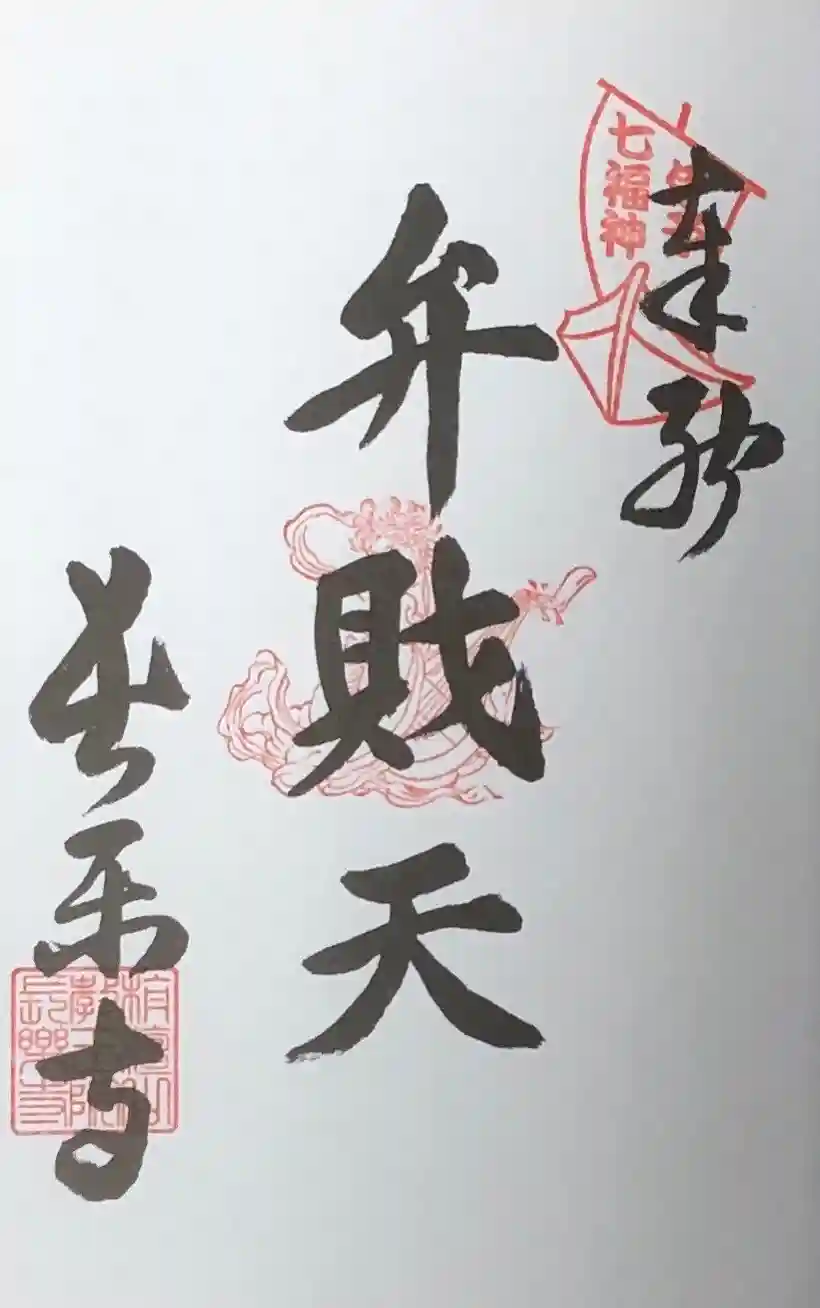 奉拝
七福神
弁財天
長楽寺